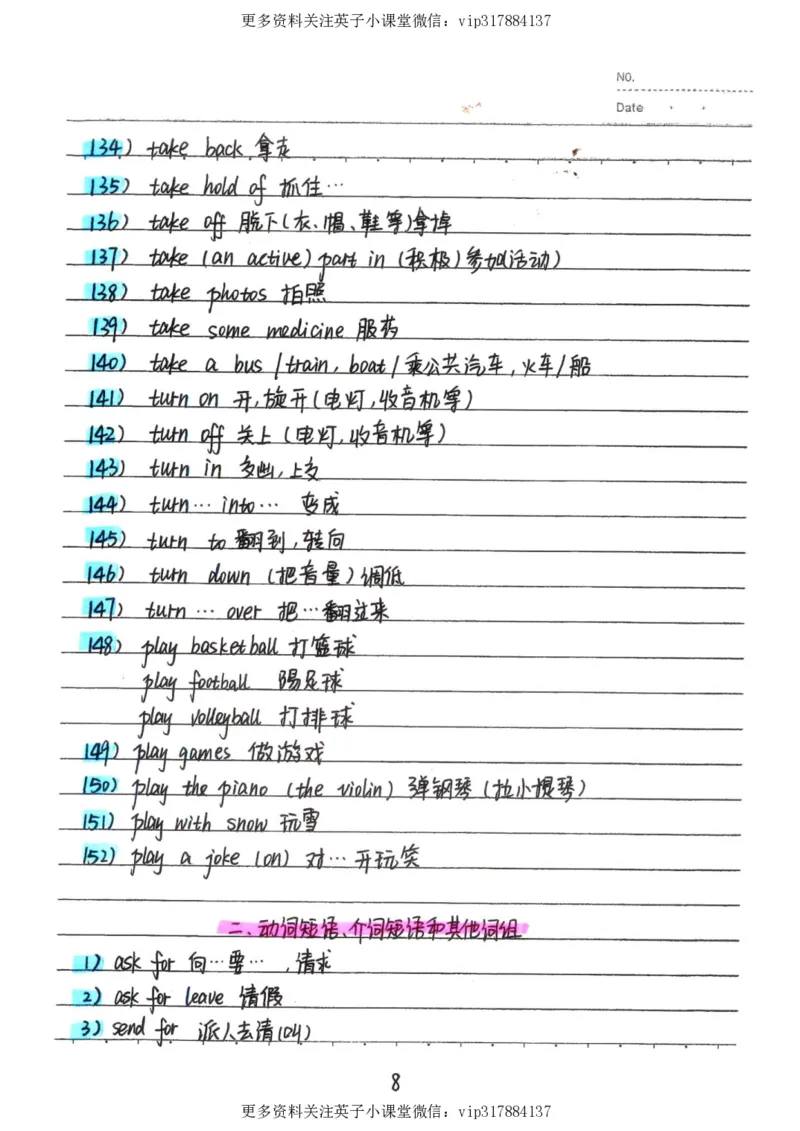 更多资料关注英子小课堂微信：vip317884137
NO.
Date
134) take back 拿走
135) take hold of 抓住…
136) take off 脱下(衣、帽、鞋等)拿掉
137) take (an active) part in (积极)参加(活动)
138) take photos 拍照
139) take some medicine 服药
140) take a bus /train, boat/乘公共汽车,火车/船
141) turn on 开,旋开(电灯,收音机等)
142) turn off 关上(电灯,收音机等)
143) turn in 交出,上交
144) turn… into… 变成
145) turn to 翻到,转向
146) turn down (把音量)调低
147) turn … over 把…翻过来
148) play basketball 打篮球
play football 踢足球
play volleyball 打排球
149) play games 做游戏
150) play the piano (the violin) 弹钢琴(拉小提琴)
151) play with snow 玩雪
152) play a joke (on) 对…开玩笑
二、动词短语、介词短语和其他词组
1) ask for 向…要… ,请求
2) ask for leave 请假
3) send for 派人去请(叫)
8
更多资料关注英子小课堂微信：vip317884137